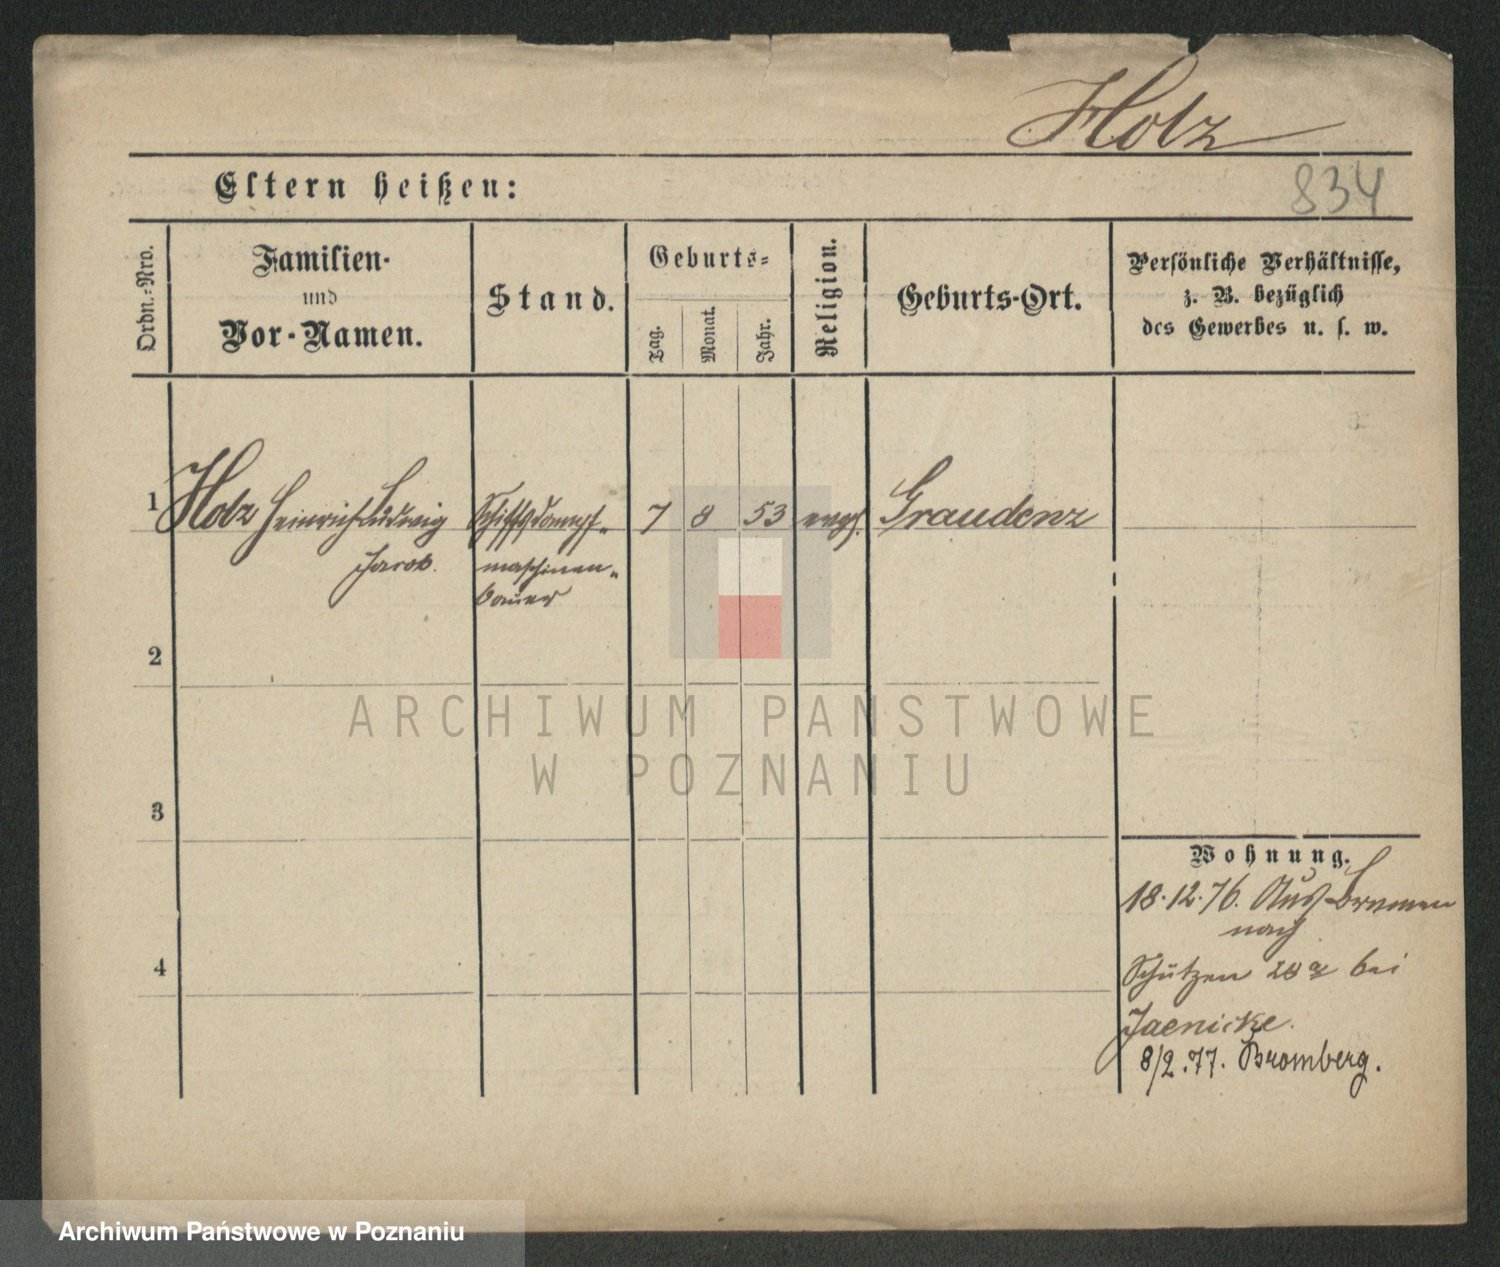 Holz
Eltern heißen:
834
Ordn.-Nro.
Familien-
und
Vor-Namen.
Stand.
Geburts-
Tag.
Monat.
Jahr.
Religion.
Geburts-Ort.
Persönliche Verhältnisse,
z. B. bezüglich
des Gewerbes u. s. w.
1 Holz Heinrich Ludwig Schiffsdampf- 7 8 53 evgl. Graudenz
Jacob. maschinen-
bauer
2
ARCHIWUM PAŃSTWOWE
W POZNANIU
3
Wohnung.
18.12.76. Aus Bremen
nach
4
Schützen 20a bei
Jaenicke.
8/2.77. Bromberg.
Archiwum Państwowe w Poznaniu